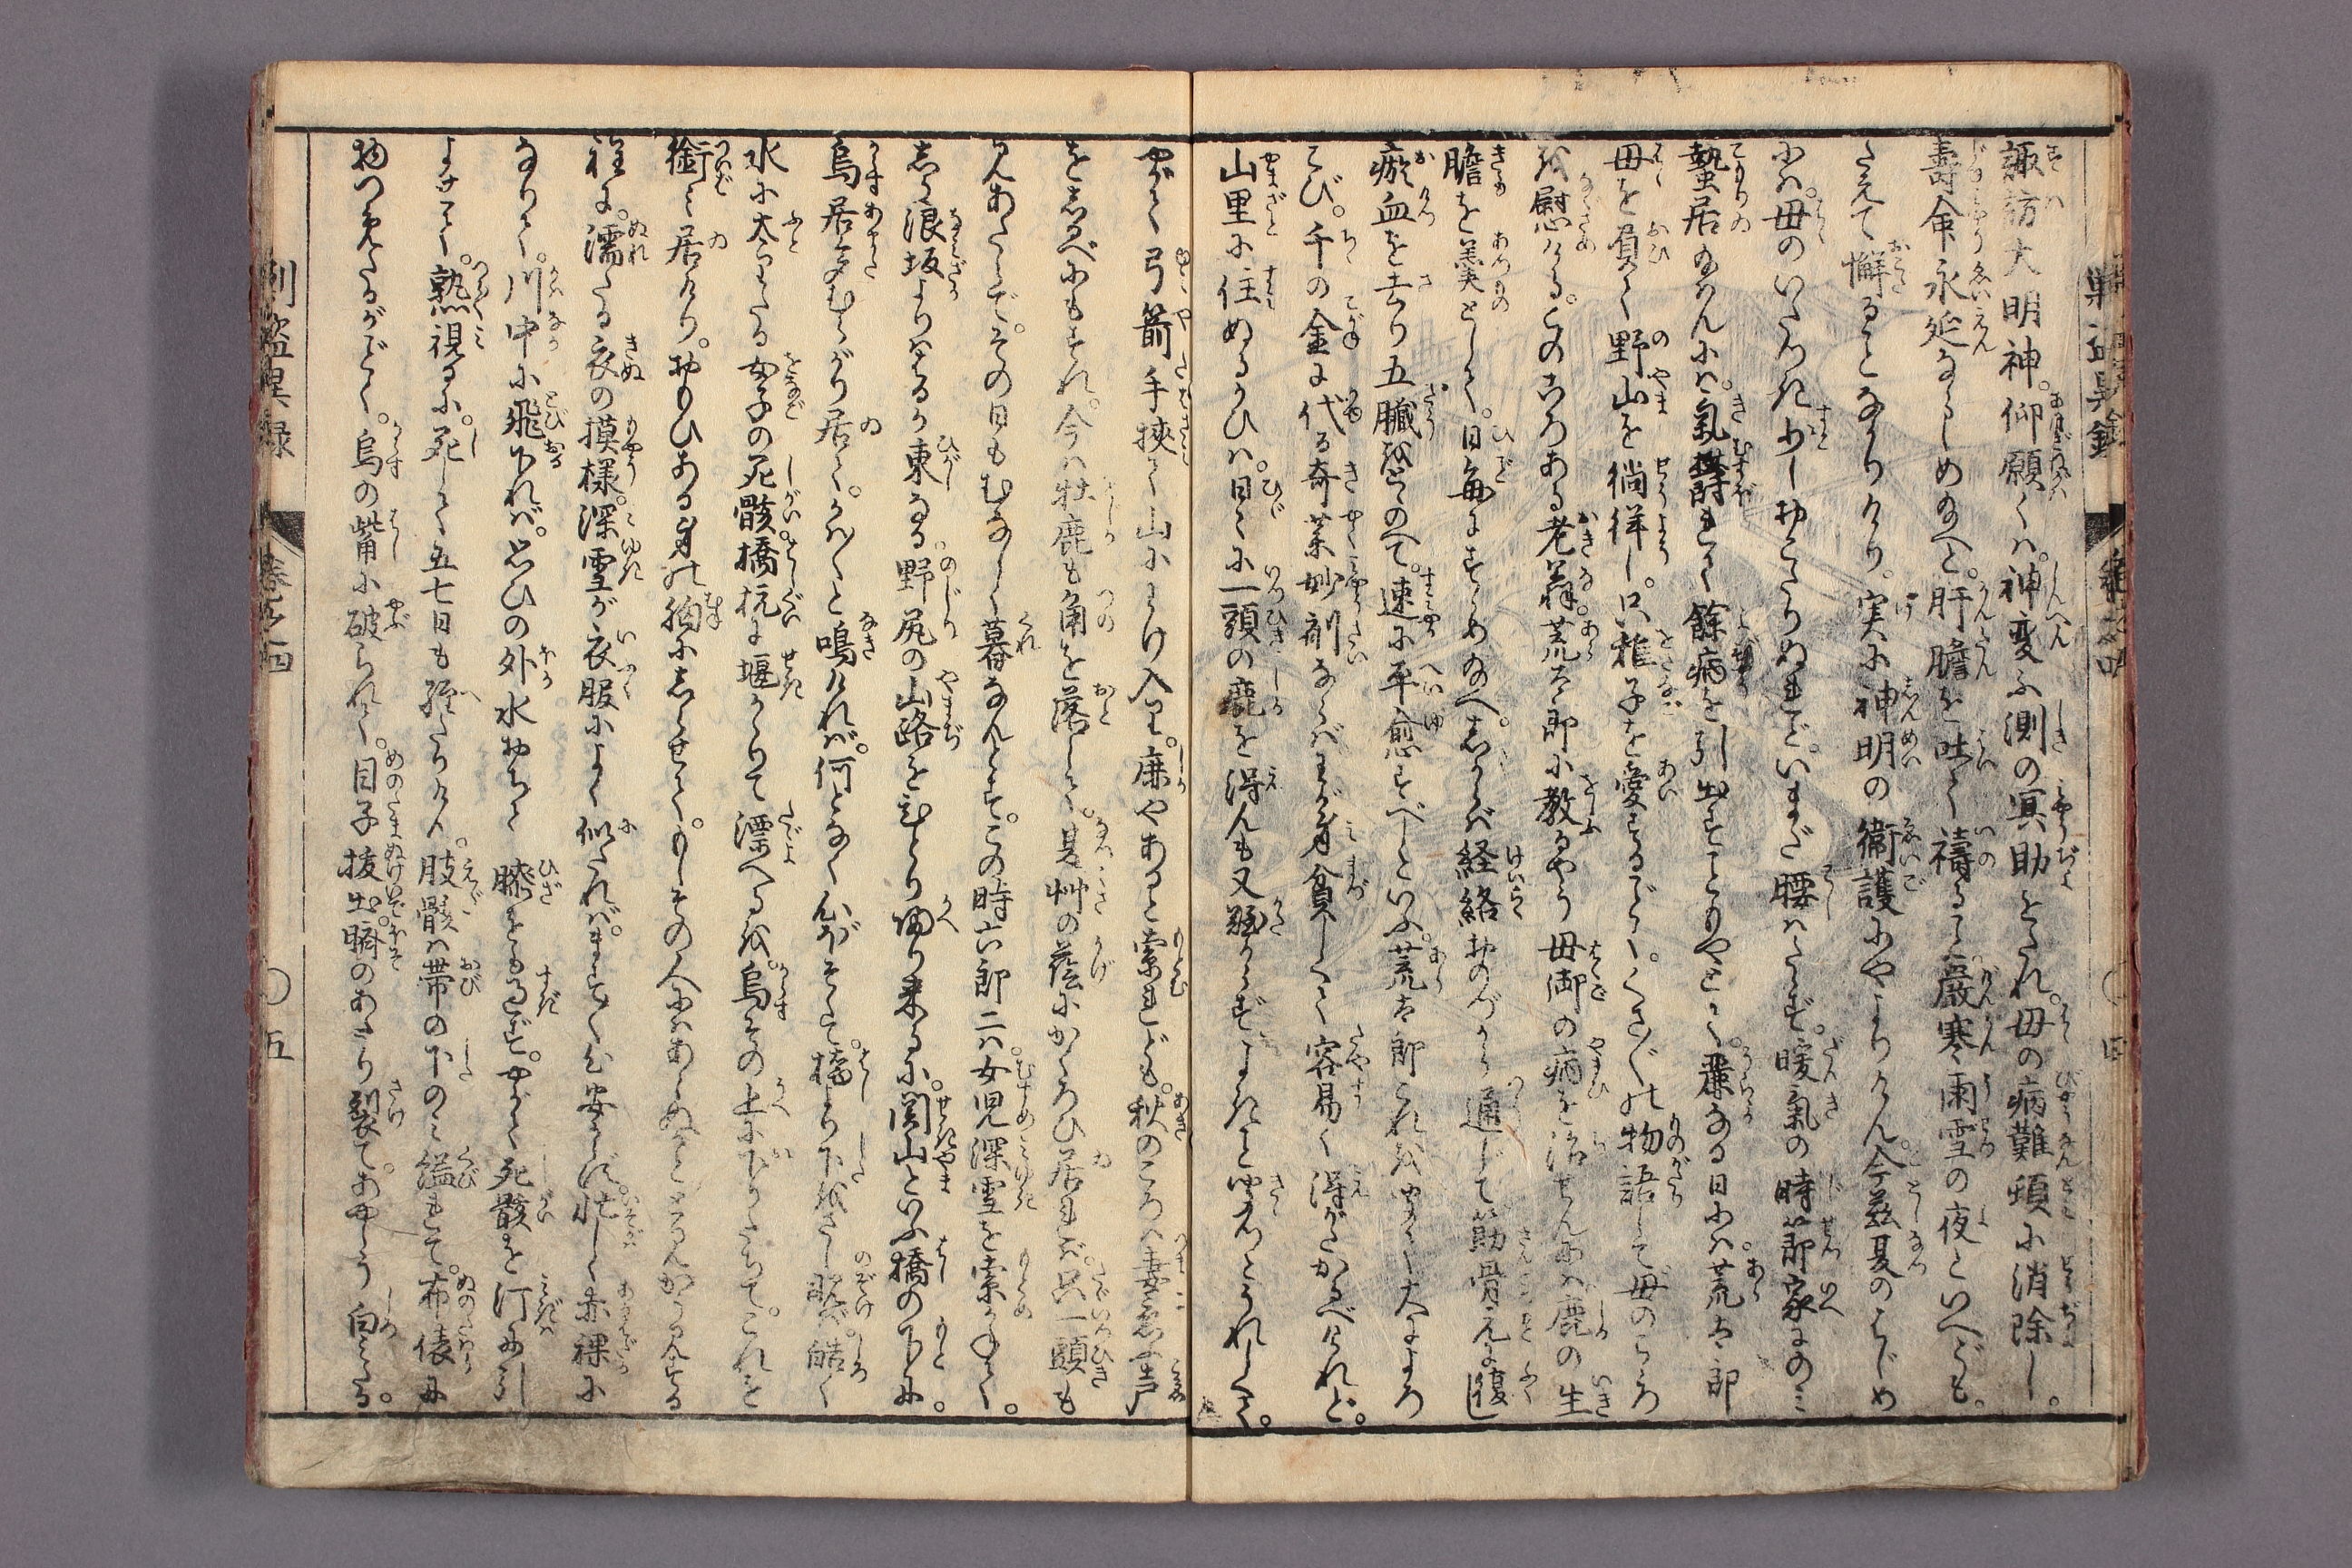 諏訪大明神。仰願くハ。神変不測の冥助をたれ。母の病難頓に消除し。
壽命永延ならしめ給へと。肝膽を吐て祷ること。嚴寒雨雪の夜といへども。
たえて懈ることなかりけり。実に神明の衞護にやよりけん。今茲夏のはじめ
にハ。母のいたつき少しおこたりぬれど。いまだ腰ハたゝず。暖氣の時節家にのミ
蟄居給はんにハ。氣欝れて餘病を引出すこともやとて。麗なる日にハ。荒太郎
母を負て野山を徜徉し。只稚子を愛するごとく。くさ〴〵の物語して母のこゝろ
を慰ける。このころある老翁。荒太郎に教るやう母御の病を治せんにハ鹿の生
膽を羹として。日毎にすゝめ給へ。しからバ経絡おのづから通じて筋骨元に復し
瘀血を去り五臓をとゝのへて。速に平愈すべしといふ。荒太郎これをきゝて大によろ
こび。千の金に代る奇薬妙剤ならバわが身貧しくて容易く得がたかるべけれど。
山里に住ぬるかひハ。日々に一頭の鹿を得んも又難からずよきことをきゝつとうれしくて。
やがて弓箭手挾て山にわけ入り。鹿やあると索れども。秋のころハ妻恋ふ声
をしるべにもすれ。今ハ牡鹿も角を落して。夏艸の蔭にかくろひ居れバ。只一頭も
見あたらで。その日もむなしく暮なんとす。この時六郎二ハ。女児深雪を索かねて。
しら浪坂よりはるか東なる。野尻の山路をひとり帰り来るに。関山といふ橋の下に。
烏居多むらがり居て。かハ〳〵と鳴けれバ。何となく心ぼそくて。橋より下をさし覗バ。皓く
水に太りたる女子の死骸。橋杭に堰かゝりて漂へるを。烏その上に下りたちて。これを
啣ミ居けり。おもひある身の胸にしらせて。もしその人にハあらぬかとさらんがう見する
程に。濡たる衣の摸様。深雪が衣服によく似たれバ。ますく心安からず。忙しく赤裸に
なりて。川中に飛下れバ。思ひの外水おちて膝をも過ず。やがて死骸を汀に引
よせて。熟視るに。死して五七日も経たりけん。肢骸ハ帯の下のミ縊れて。布俵に
物つめたるがごとく。烏の觜に破られて。目子抜出。臍のあたり裂て。あやしう白ミたる。
巻之四
〇四
巻之四
〇五